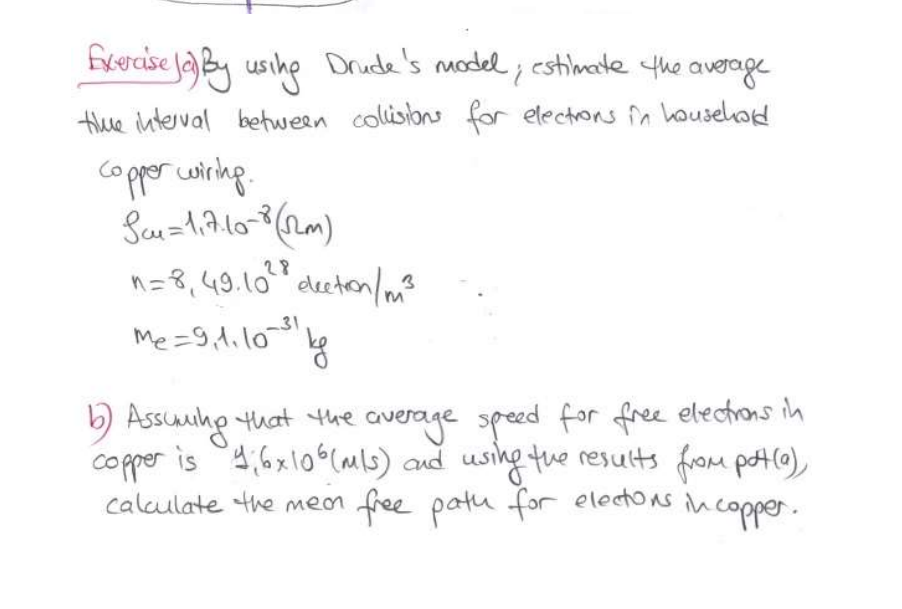 Exercise (a) By using Drude's model; estimate the average
time interval between collisions for electrons in household
copper wiring.
ρcu=1,7.10⁻⁸(Ωm)
n=8,49.10²⁸ electron/m³
me=9,1.10⁻³¹ kg
b) Assuming that the average speed for free electrons in
copper is 1,6x10⁶(m/s) and using the results from part(a),
calculate the mean free path for electons in copper.